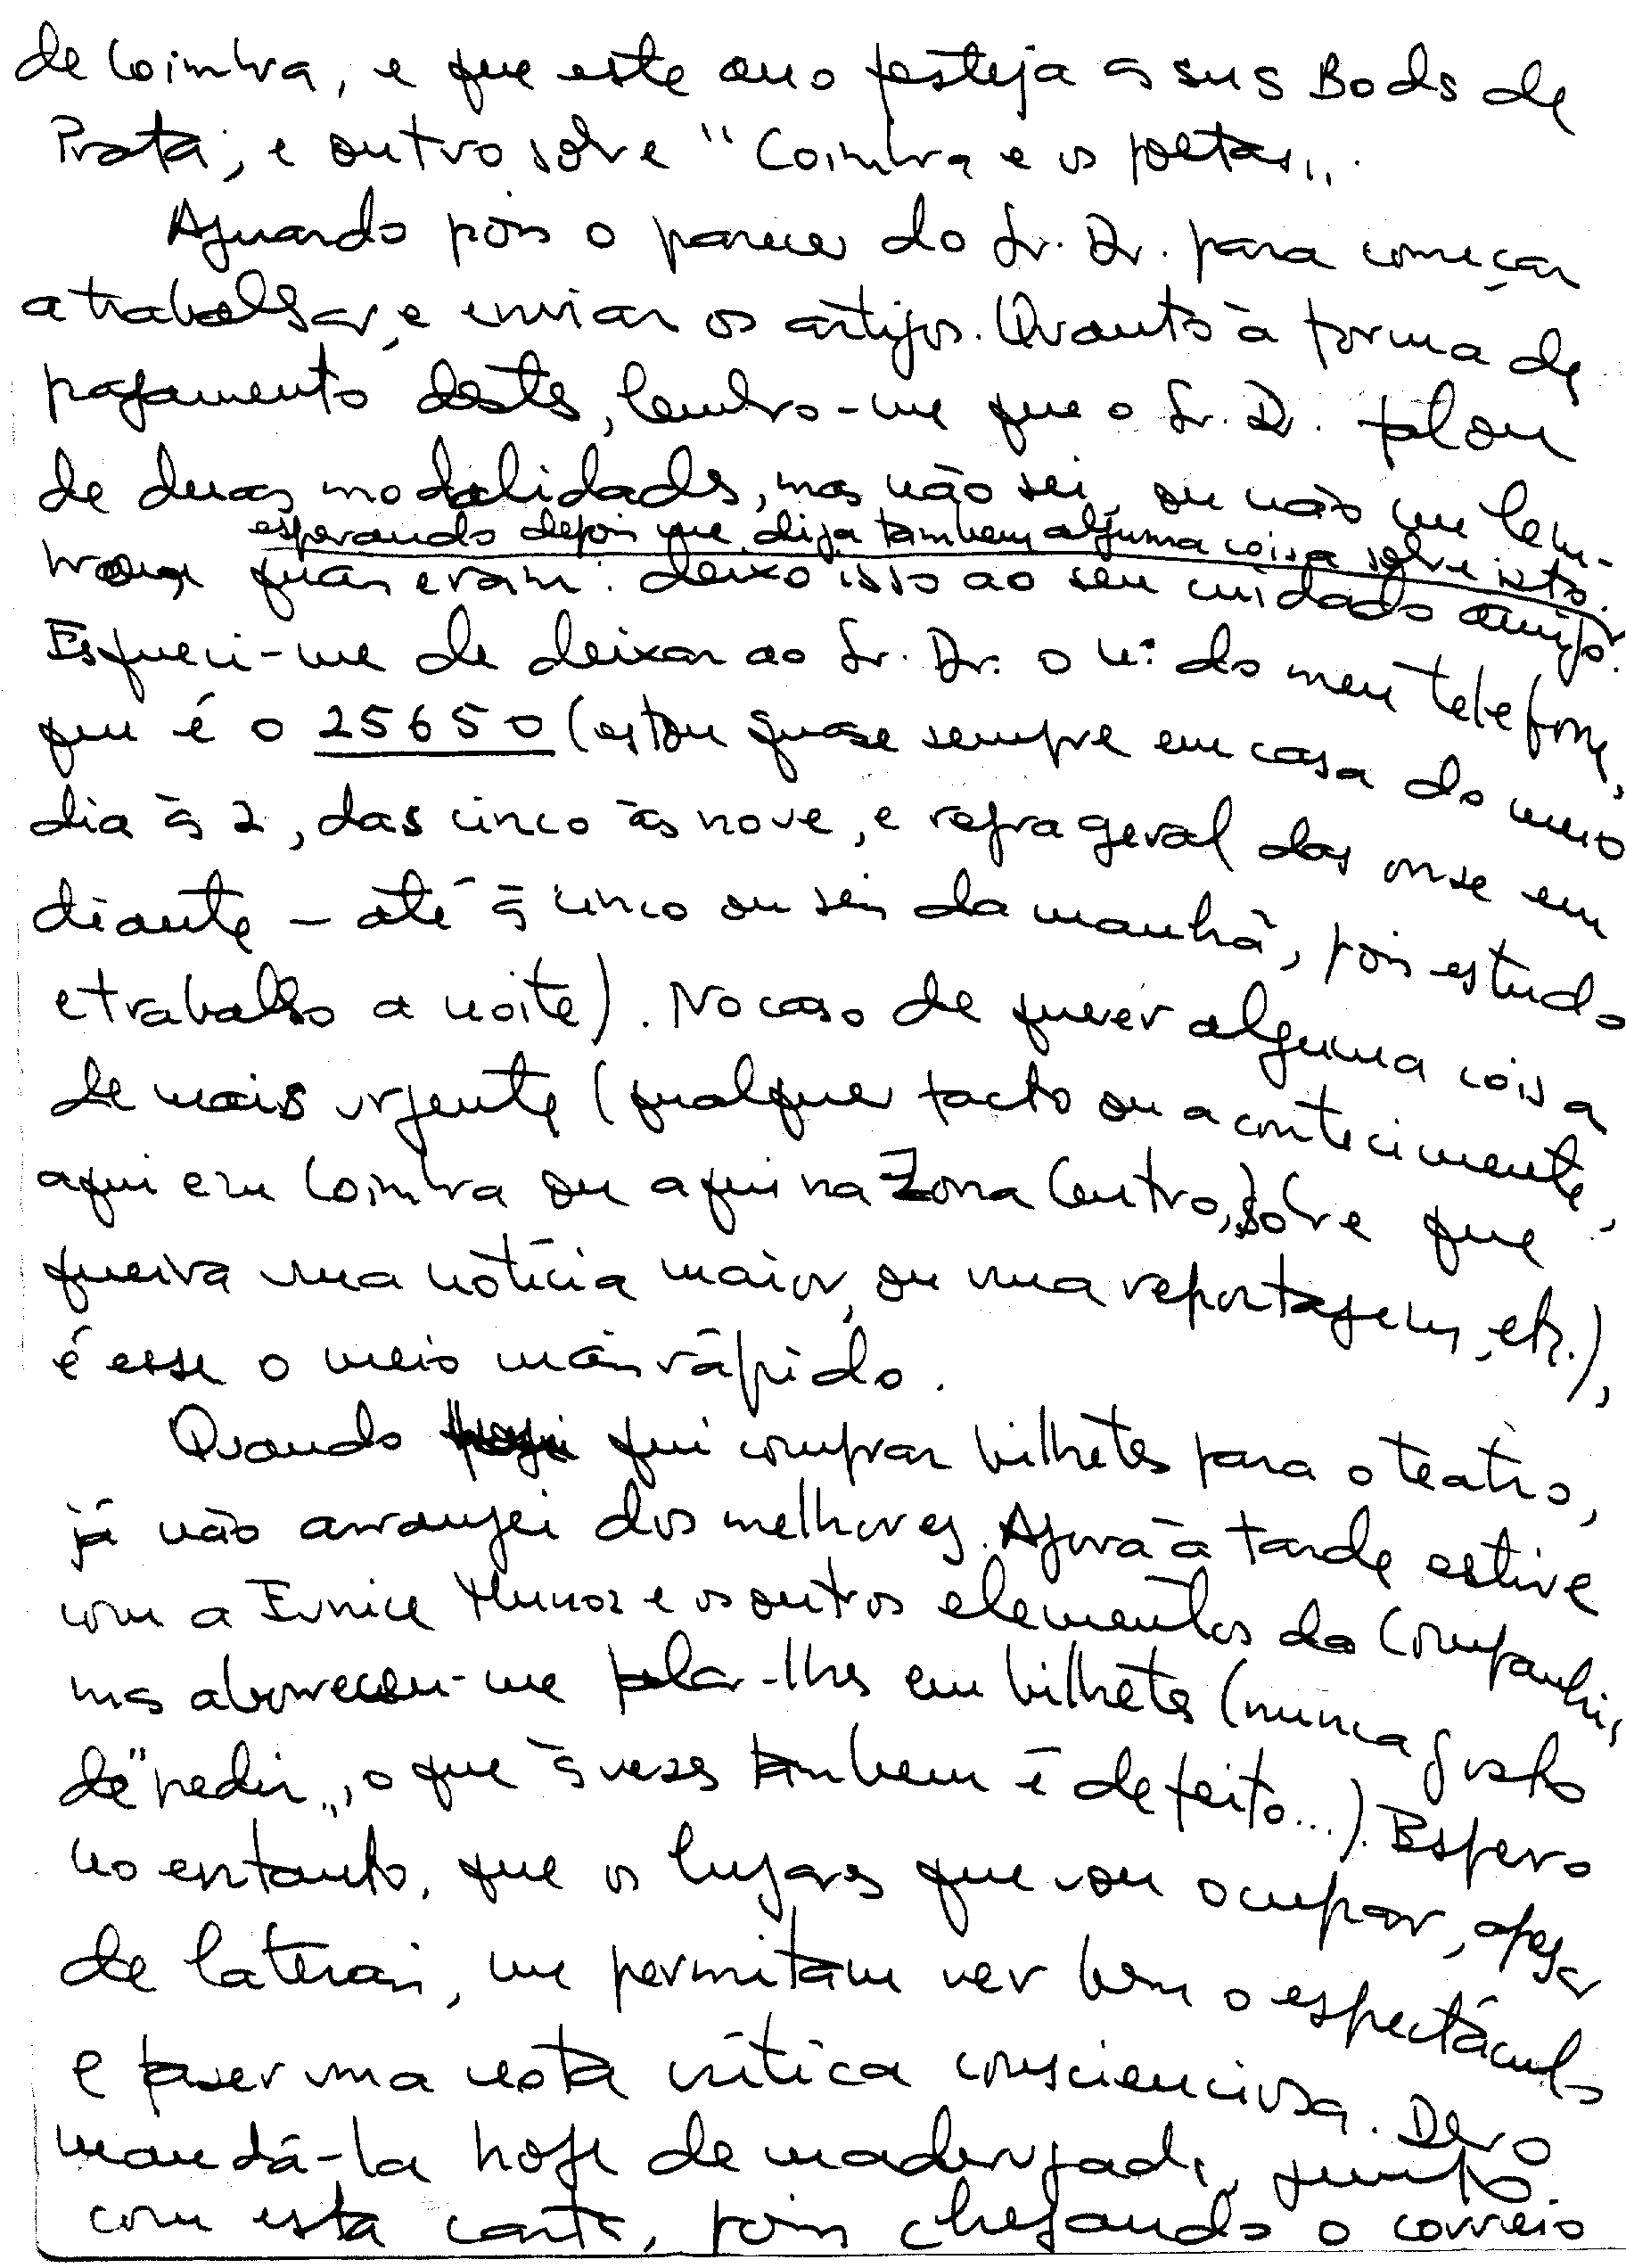 de Coimbra, e que este ano festeja as suas Bodas de
Prata; e outro sobre "Coimbra e os poetas".
Aguardo pois o parecer do Sr. Dr. para começar
a trabalhar, e enviar os artigos. Quanto à forma de
pagamento destes, lembro-me que o Sr. Dr. falou
de duas modalidades, mas não sei, ou não me lem-
esperando depois que diga tambem alguma coisa sobre isto.
quais eram: deixo isso ao seu cuidado amigo.
Esqueci-me de deixar ao Sr. Dr. o nº do meu telefone,
que é o 25650 (estou quase sempre em casa do meio
dia às 2, das cinco às nove, e regra geral das onse em
diante - até às cinco ou seis da manhã, pois estudo
e trabalho a noite). No caso de querer alguma coisa
de mais urgente (qualquer facto ou acontecimento,
aqui em Coimbra ou aqui na Zona Centro, sobre que
queira uma notícia maior, ou uma reportagem, etc.),
é esse o meio mais rápido.
Quando fui comprar bilhetes para o teatro,
já não arranjei dos melhores. Agora à tarde estive
com a Eunice Munoz e os outros elementos da Companhia,
mas aborreceu-me falar-lhes em bilhetes (nunca gosto
de "pedir", o que às vezes tambem é defeito...). Espero
no entanto, que os lugares que vou ocupar, apesar
de laterais, me permitam ver bem o espectáculo
e fazer uma nota crítica conscienciosa. Devo
mandá-la hoje de madrugada, junto
com esta carta, pois chegando o correio